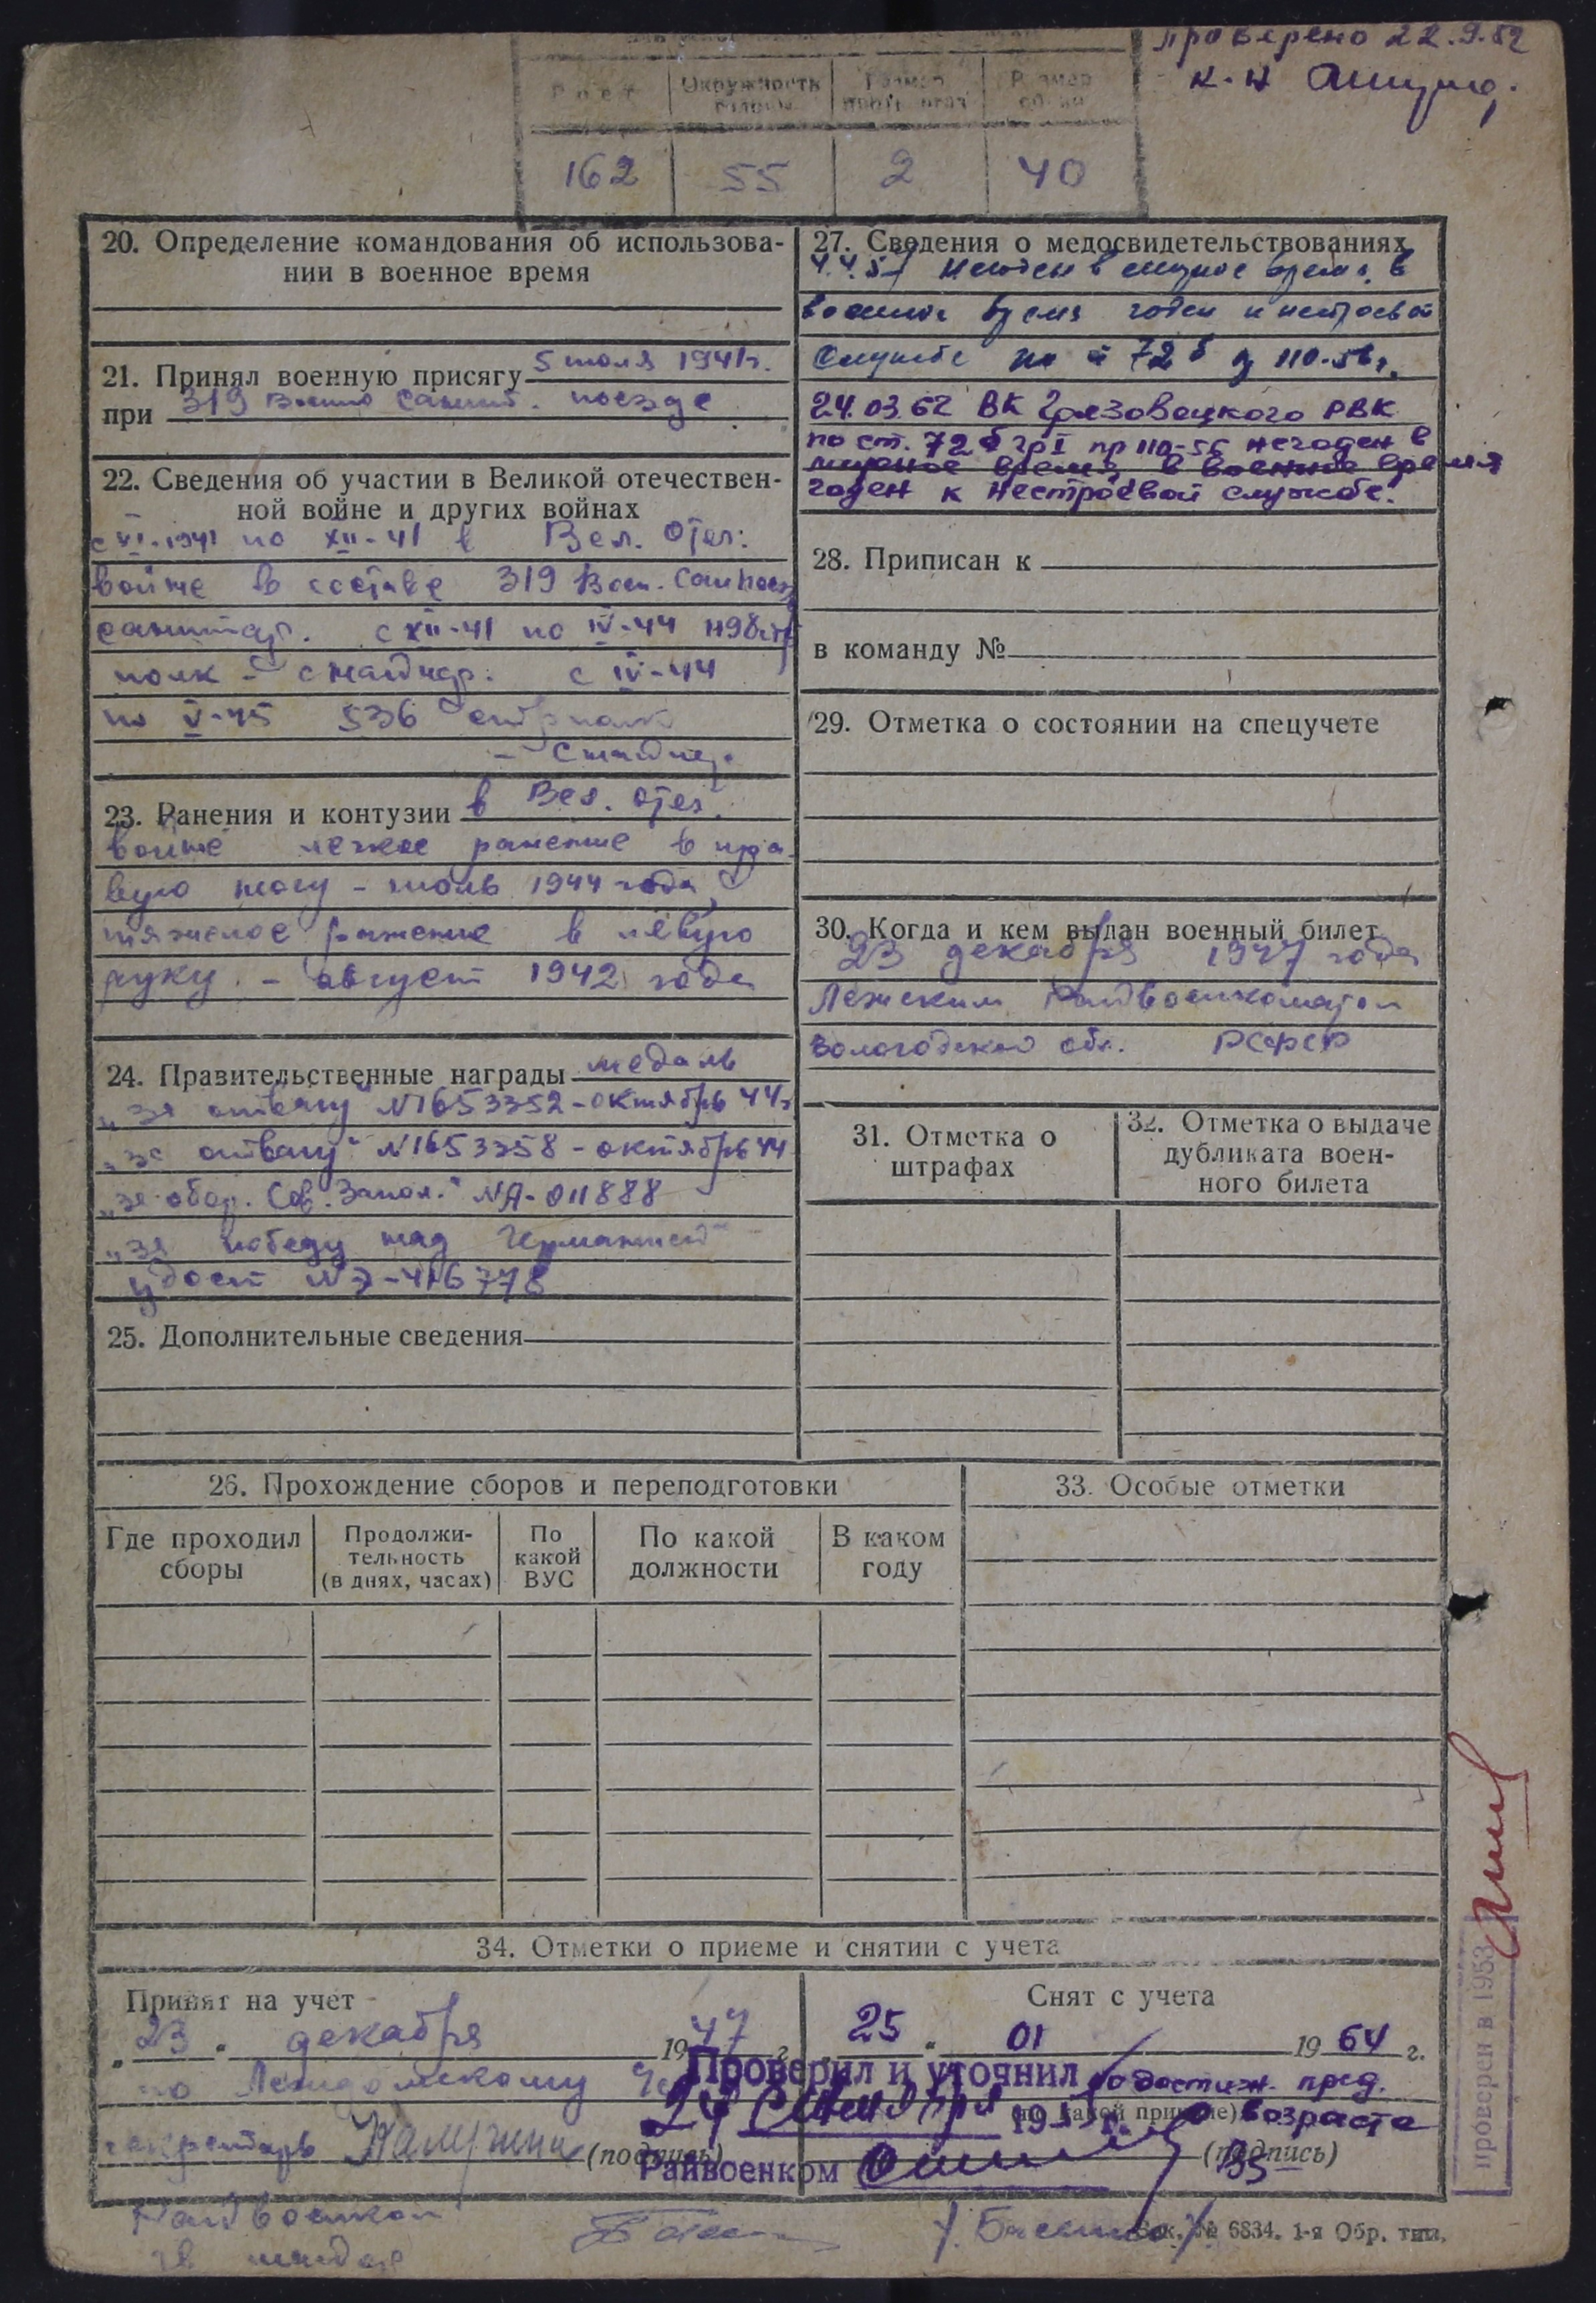 проверено 22.9.52
к-н
Рост Окружность головы Размер Размер
162 55 2 40
20. Определение командования об использова-
нии в военное время
21. Принял военную присягу 5 июля 1941г.
при 319 Военно Санит. поезде
22. Сведения об участии в Великой отечествен-
ной войне и других войнах
с VI-1941 по XII-41 в Вел. Отеч.
войне в составе 319 Воен. Санпоезд
санитар. с XII-41 по IV-44 1198 стр
полк - снайпер. с IV-44
по V-45 536 стр полк
- Снайпер.
23. Ранения и контузии в Вел. Отеч.
войне легкое ранение в пра
вую ногу - июль 1944 года,
тяжелое ранение в левую
руку. - август 1942 года
24. Правительственные награды медаль
"за отвагу" №1653352 - октябрь 44г
"за отвагу" №1653358 - октябрь 44
"за обор. Сов. Запол." №А-011888
"за победу над Германией"
удост №
25. Дополнительные сведения
27. Сведения о медосвидетельствованиях
Негоден в мирное время, в
военное время годен к нестроевой
службе по 72 б 110-56г.
24.03.62 ВК Грязовецкого РВК
по ст. 72 б гр I пр 110-56 негоден в
мирное время, в военное время
годен к нестроевой службе.
28. Приписан к
в команду №
29. Отметка о состоянии на спецучете
30. Когда и кем выдан военный билет
23 декабря 1947 года
Лежским Райвоенкоматом
Вологодской обл. РСФСР
31. Отметка о
штрафах
32. Отметка о выдаче
дубликата воен-
ного билета
26. Прохождение сборов и переподготовки
Где проходил
сборы
Продолжи-
тельность
(в днях, часах)
По
какой
ВУС
По какой
должности
В каком
году
33. Особые отметки
34. Отметки о приеме и снятии с учета
Принят на учет
"23" декабря 1947 г.
по
секретарь (подпись)
Снят с учета
25 " 01 1964 г.
по достиж. пред.
возраста
(по какой причине)
(подпись)
Проверил и уточнил
24 19 г.
Райвоенком
Райвоенком
Зак. № 6834. 1-я Обр. тип.
проверен в 1953